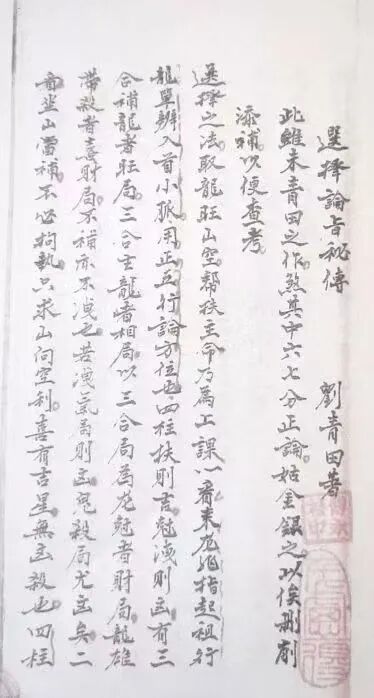 選擇論旨秘傳 劉青田著
此雖未青田之作煞其中六七分正論姑金銀之以俟刪削
添補以便查考
選擇之法取龍旺山空幫扶主命乃為上課一看來龙非指起祖行
龍單辨入首小脈用正五行論方位也四柱扶則吉尅洩則凶有三
合補龍者旺局三合生龍者相局以三合局為龙尅者財局龍雄
帶殺者喜財局不補亦不洩也若洩氣局則凶鬼殺局尤凶矣二
看坐山當補不必拘執只求山向空利喜有吉星無凶殺也四柱